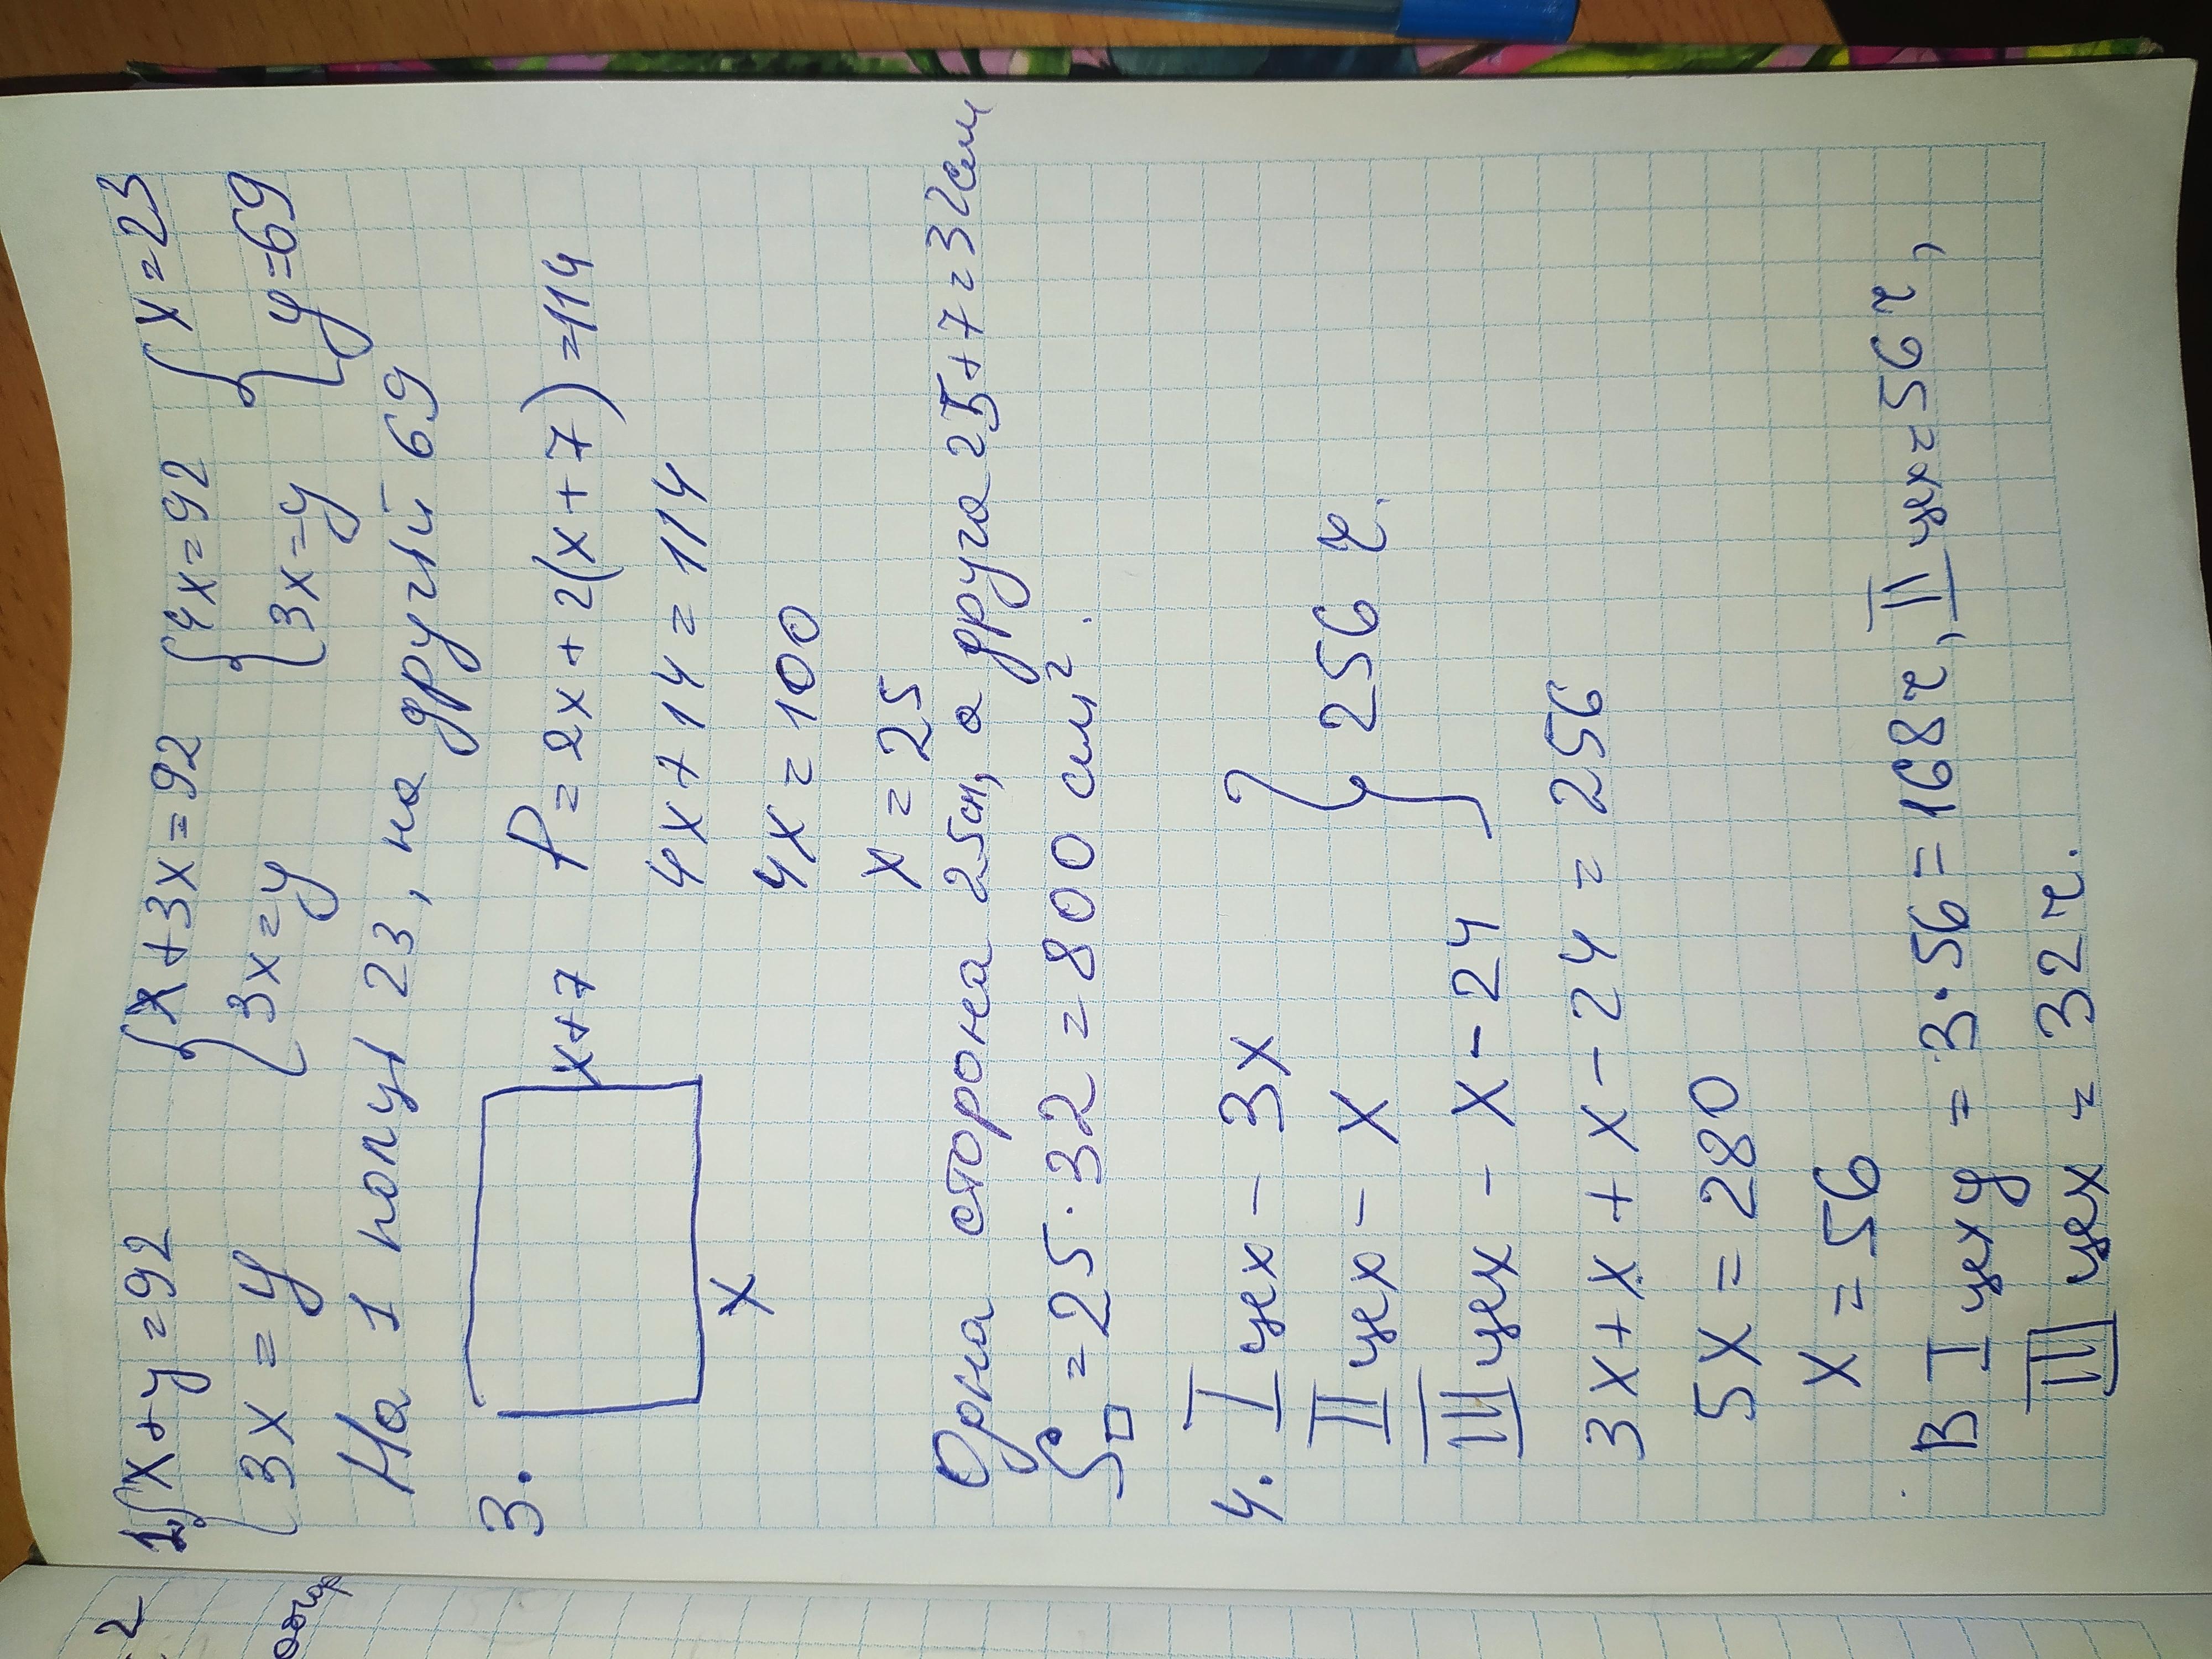 1. { x+y=92 { x+3x=92 { 4x=92 { x=23
3x=y 3x=y 3x=y y=69
На 1 полці 23, на другій 69
3. x+7 P=2x+2(x+7)=114
4x+14=114
x 4x=100
x=25
Одна сторона 25см, а друга 25+7=32см
S□=25·32=800 см².
4. I цех – 3x
II цех – x } 256 ч.
III цех – x-24
3x+x+x-24=256
5x=280
x=56
В I цеху = 3·56=168ч, II цех=56ч,
III цех = 32ч.
2